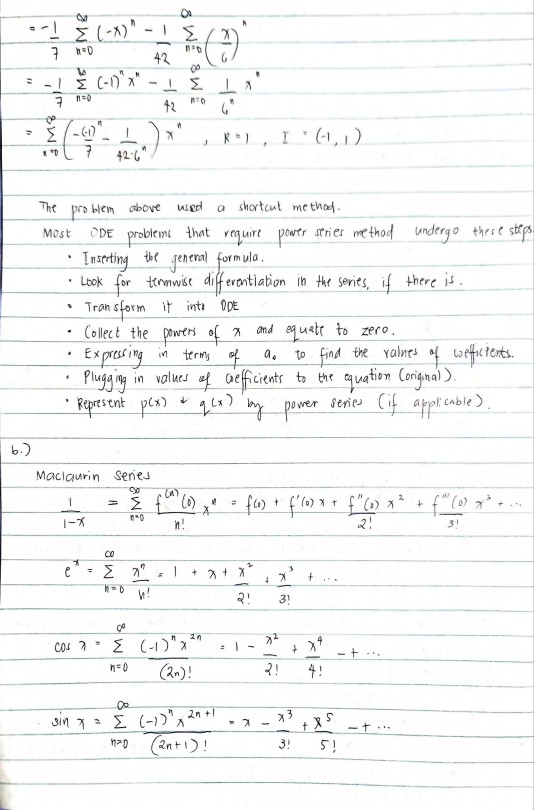 = -1/7 ∑_{n=0}^{∞} (-x)^n - 1/42 ∑_{n=0}^{∞} (x/6)^n
= -1/7 ∑_{n=0}^{∞} (-1)^n x^n - 1/42 ∑_{n=0}^{∞} 1/6^n x^n
= ∑_{n=0}^{∞} (-(-1)^n/7 - 1/(42·6^n)) x^n , R = 1 , I = (-1, 1)
The problem above used a shortcut method.
Most ODE problems that require power series method undergo these steps
• Inserting the general formula.
• Look for termwise differentiation in the series, if there is.
• Transform it into ODE
• Collect the powers of x and equate to zero.
• Expressing in terms of a₀ to find the values of coefficients.
• Plugging in values of coefficients to the equation (original).
• Represent p(x) & q(x) by power series (if applicable).
b.)
Maclaurin series
1/(1-x) = ∑_{n=0}^{∞} f^(n)(0)/n! x^n = f(0) + f'(0) x + f''(0) x^2/2! + f'''(0) x^3/3! + ...
e^x = ∑_{n=0}^{∞} x^n/n! = 1 + x + x^2/2! + x^3/3! + ...
cos x = ∑_{n=0}^{∞} (-1)^n x^{2n}/(2n)! = 1 - x^2/2! + x^4/4! - + ...
sin x = ∑_{n=0}^{∞} (-1)^n x^{2n+1}/(2n+1)! = x - x^3/3! + x^5/5! - + ...